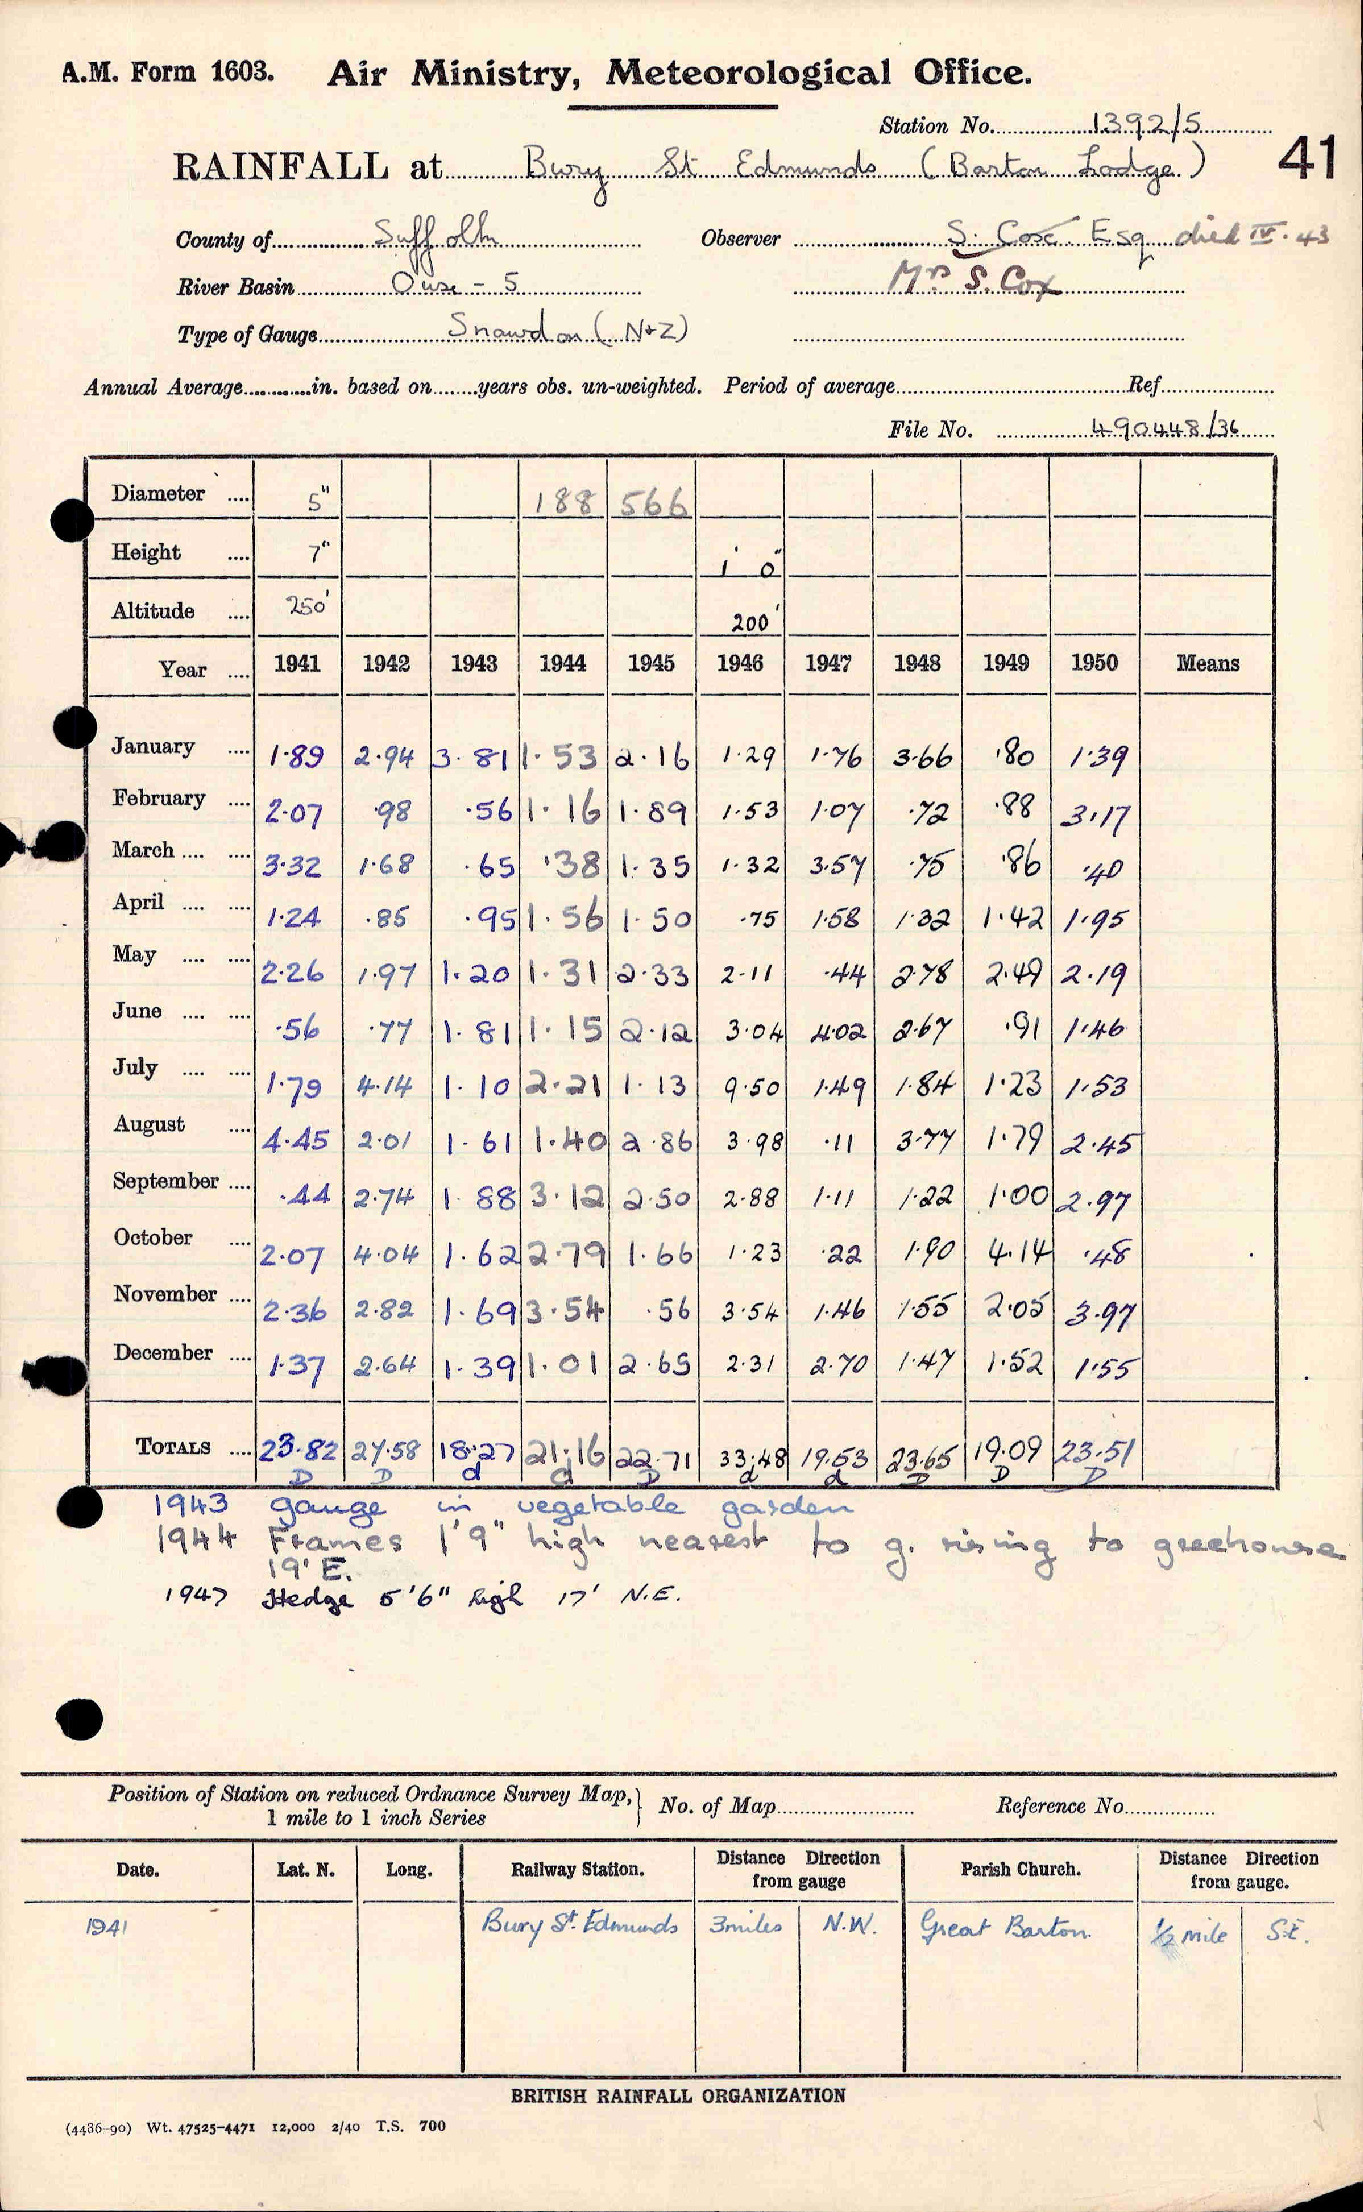 A.M. Form 1603. Air Ministry, Meteorological Office.
Station No. 1392/5
RAINFALL at Bury St Edmunds (Barton Lodge) 41
County of Suffolk Observer S. Cox. Esq died IV. 43
River Basin Ouse - 5 Mrs S. Cox
Type of Gauge Snowdon (N+Z)
Annual Average in. based on years obs. un-weighted. Period of average Ref
File No. 490448/36
Diameter 5" 188 566
Height 7" 1' 0"
Altitude 250' 200'
Year 1941 1942 1943 1944 1945 1946 1947 1948 1949 1950 Means
January 1.89 2.94 3.81 1.53 2.16 1.29 1.76 3.66 .80 1.39
February 2.07 .98 .56 1.16 1.89 1.53 1.07 .72 .88 3.17
March 3.32 1.68 .65 .38 1.35 1.32 3.57 .75 .86 .40
April 1.24 .85 .95 1.56 1.50 .75 1.58 1.32 1.42 1.95
May 2.26 1.97 1.20 1.31 2.33 2.11 .44 2.78 2.49 2.19
June .56 .77 1.81 1.15 2.12 3.04 4.02 2.67 .91 1.46
July 1.79 4.14 1.10 2.21 1.13 9.50 1.49 1.84 1.23 1.53
August 4.45 2.01 1.61 1.40 2.86 3.98 .11 3.77 1.79 2.45
September .44 2.74 1.88 3.12 2.50 2.88 1.11 1.22 1.00 2.97
October 2.07 4.04 1.62 2.79 1.66 1.23 .22 1.90 4.14 .48
November 2.36 2.82 1.69 3.54 .56 3.54 1.46 1.55 2.05 3.97
December 1.37 2.64 1.39 1.01 2.65 2.31 2.70 1.47 1.52 1.55
TOTALS 23.82 27.58 18.27 21.16 22.71 33.48 19.53 23.65 19.09 23.51
D D d d D d d D D D
1943 gauge in vegetable garden
1944 Frames 1'9" high nearest to g. rising to greehouse
19' E.
1947 Hedge 5'6" high 17' N.E.
Position of Station on reduced Ordnance Survey Map, No. of Map Reference No.
1 mile to 1 inch Series
Date. Lat. N. Long. Railway Station. Distance Direction from gauge Parish Church. Distance Direction from gauge.
1941 Bury St. Edmunds 3miles N.W. Great Barton. 1/2 mile S.E.
BRITISH RAINFALL ORGANIZATION
(4486-90) Wt. 47525-4471 12,000 2/40 T.S. 700